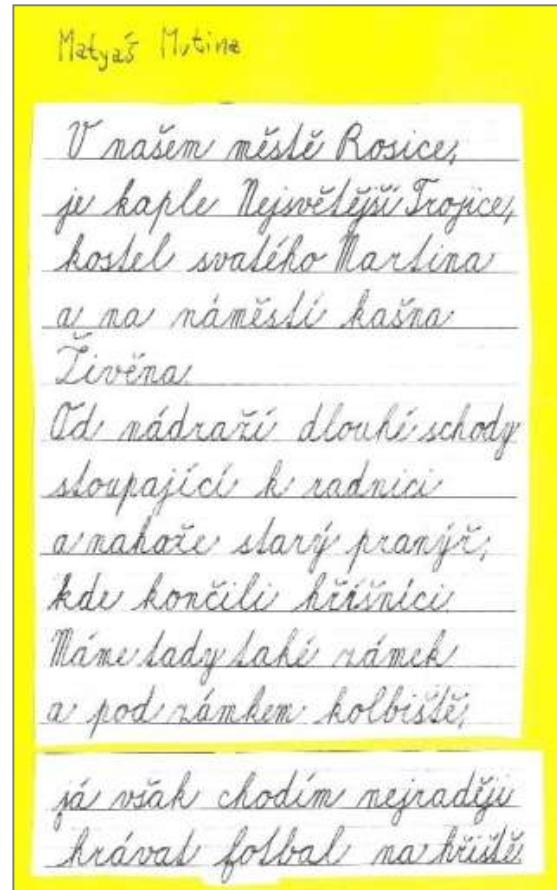 Matyáš Mutina
V našem městě Rosice,
je kaple Nejsvětější Trojice,
kostel svatého Martina
a na náměstí kašna
Živěna.
Od nádraží dlouhé schody
stoupající k radnici
a nahoře starý pranýř,
kde končili hříšníci.
Máme tady také zámek
a pod zámkem kolbiště,
já však chodím nejraději
hrávat fotbal na hřiště.